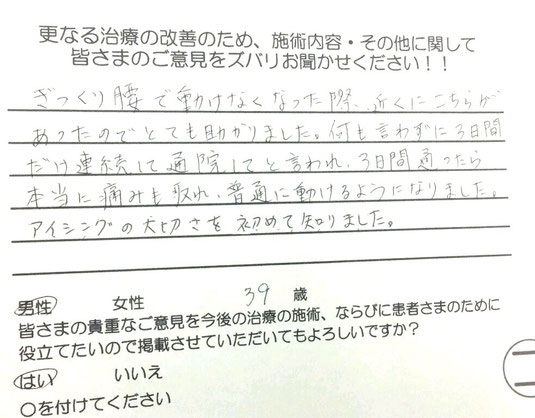 更なる治療の改善のため、施術内容・その他に関して
皆さまのご意見をズバリお聞かせください!!
ぎっくり腰で動けなくなった際、近くにこちらが
あったのでとても助かりました。何も言わずに3日間
だけ連続して通院してと言われ、3日間通ったら
本当に痛みも取れ、普通に動けるようになりました。
アイシングの大切さを初めて知りました。
男性 女性 39 歳
皆さまの貴重なご意見を今後の治療の施術、ならびに患者さまのために
役立てたいので掲載させていただいてもよろしいですか?
はい いいえ
○を付けてください